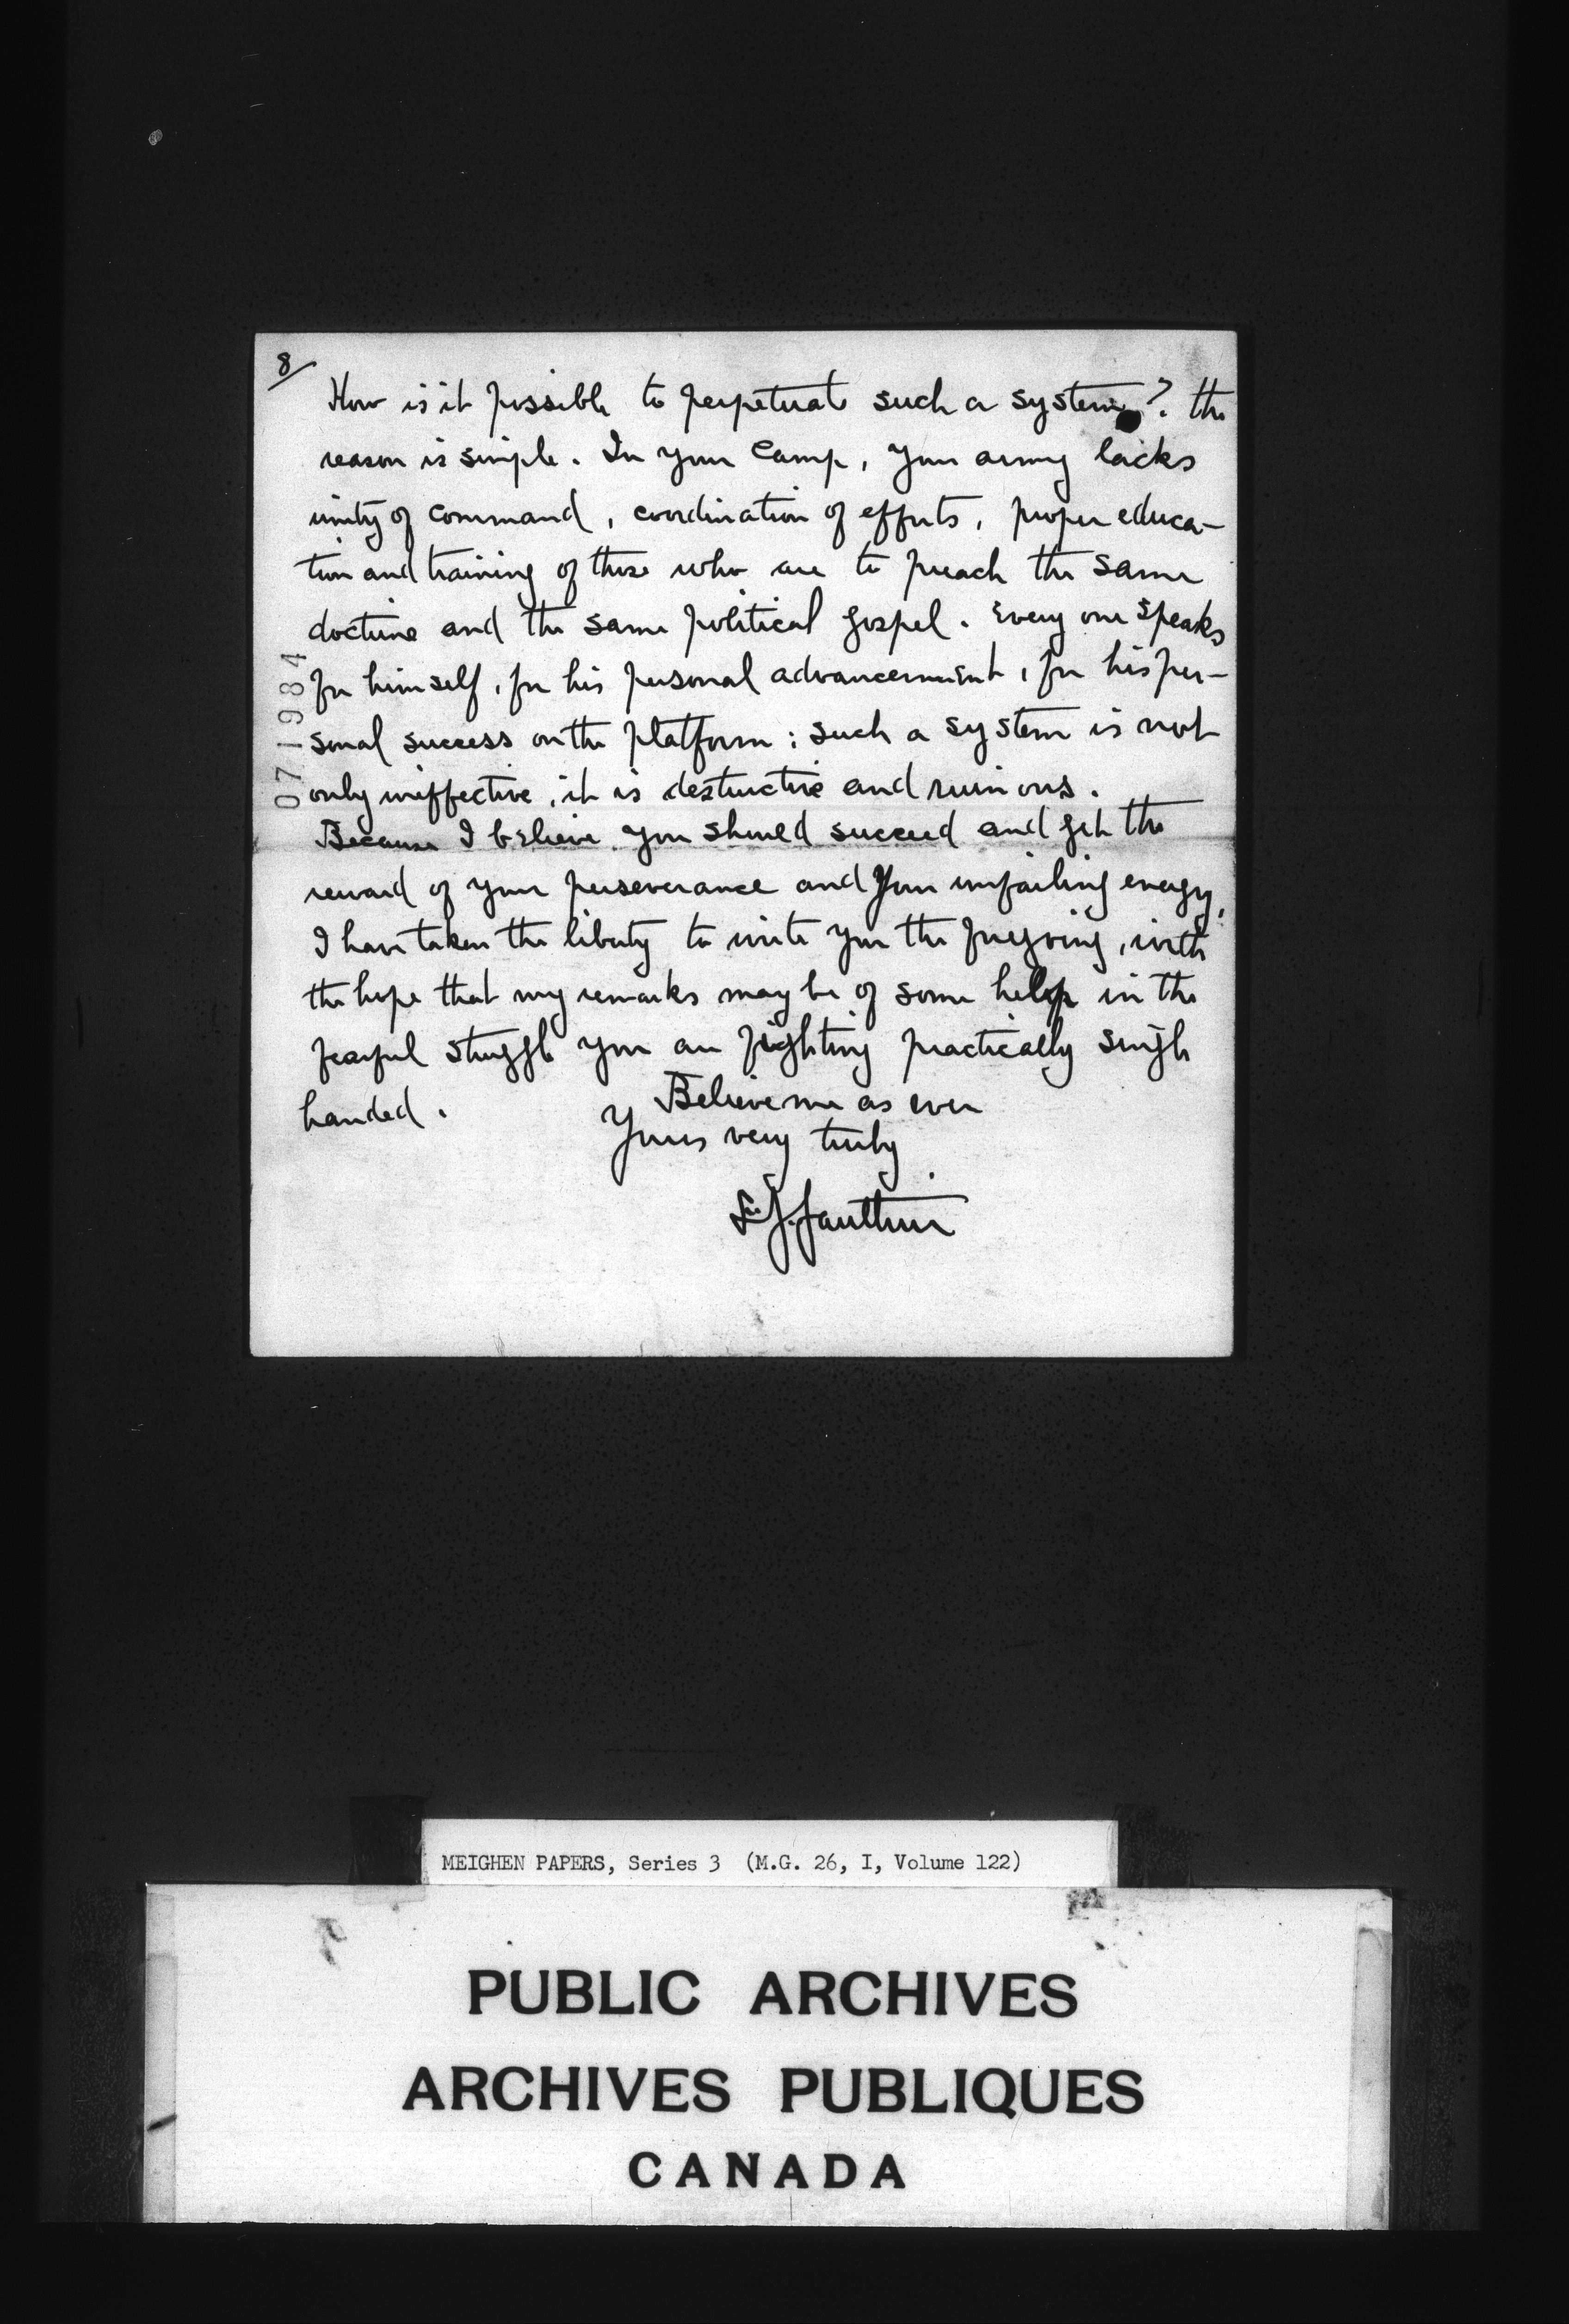 8/
How is it possible to perpetuate such a system ? the
reason is simple . In your Camp , your army lacks
unity of command , coordination of efforts , proper educa-
tion and training of those who are to preach the same
doctrine and the same political gospel . Every one speaks
for himself , for his personal advancement , for his per-
sonal success on the platform ; such a system is not
only ineffective , it is destructive and ruinous .
Because I believe you should succeed and get the
reward of your perseverance and your unfailing energy ,
I have taken the liberty to write you the foregoing , with
the hope that my remarks may be of some help in the
fearful struggle you are fighting practically single
handed .
Believe me as ever
Yours very truly
L. J. Gauthier
071984
MEIGHEN PAPERS, Series 3 (M.G. 26, I, Volume 122)
PUBLIC ARCHIVES
ARCHIVES PUBLIQUES
CANADA